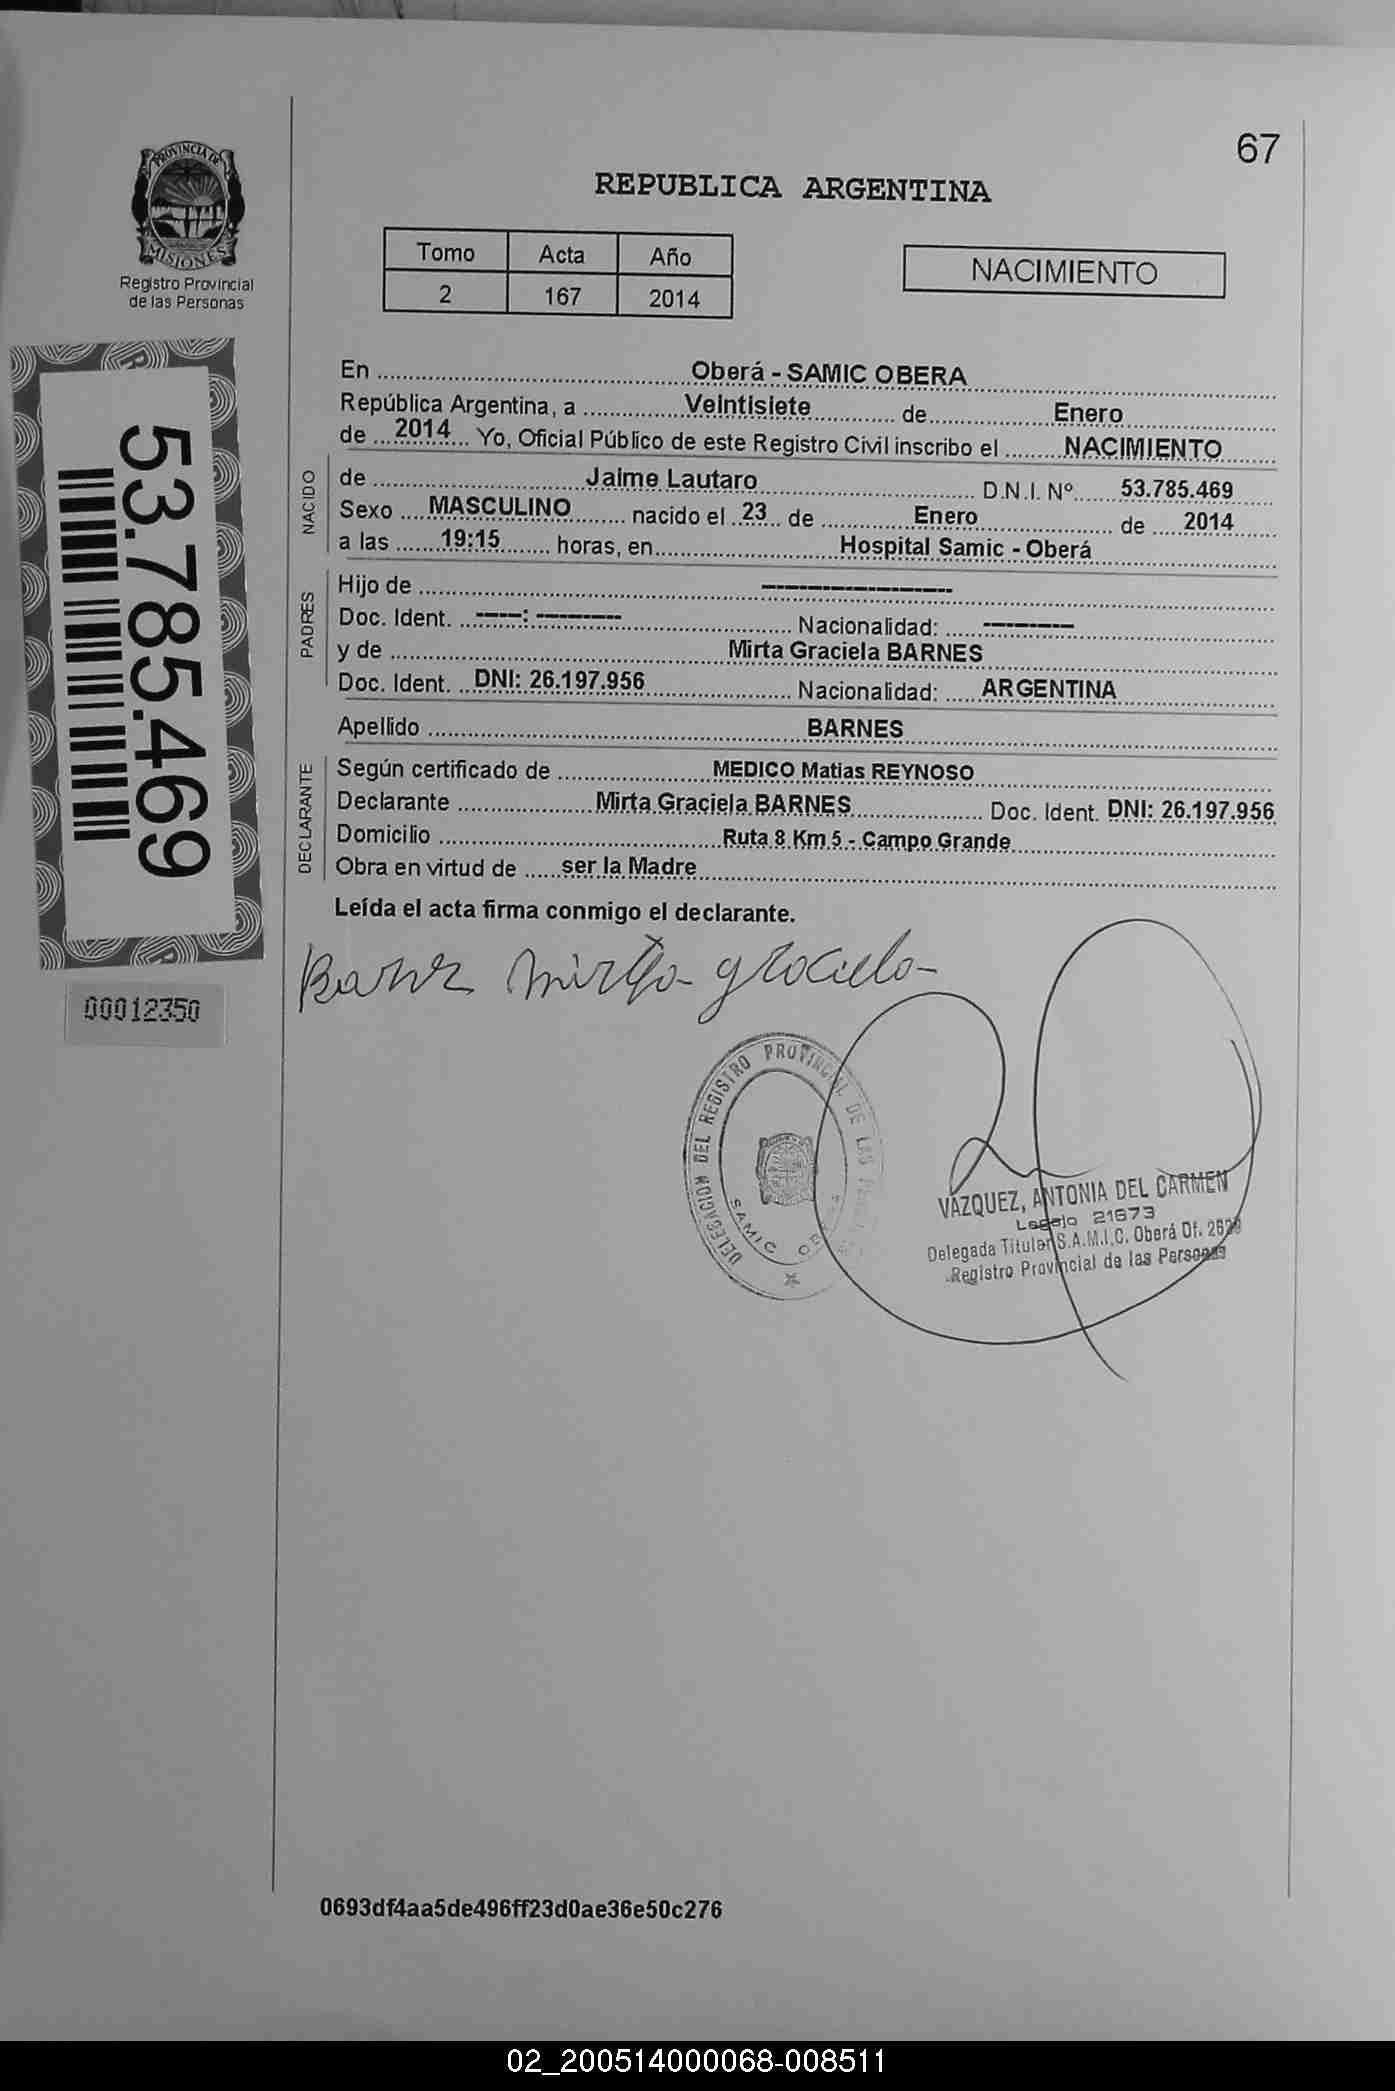 67
PROVINCIA DE
MISIONES
Registro Provincial
de las Personas
REPUBLICA ARGENTINA
Tomo Acta Año
2 167 2014
NACIMIENTO
53.785.469
00012350
En Oberá - SAMIC OBERA
República Argentina, a Veintisiete de Enero
de 2014 Yo, Oficial Público de este Registro Civil inscribo el NACIMIENTO
NACIDO
de Jaime Lautaro D.N.I. Nº 53.785.469
Sexo MASCULINO nacido el 23 de Enero de 2014
a las 19:15 horas, en Hospital Samic - Oberá
PADRES
Hijo de --------------------
Doc. Ident. -----: --------- Nacionalidad: ----------
y de Mirta Graciela BARNES
Doc. Ident. DNI: 26.197.956 Nacionalidad: ARGENTINA
Apellido BARNES
DECLARANTE
Según certificado de MEDICO Matias REYNOSO
Declarante Mirta Graciela BARNES Doc. Ident. DNI: 26.197.956
Domicilio Ruta 8 Km 5 - Campo Grande
Obra en virtud de ser la Madre
Leída el acta firma conmigo el declarante.
Mirta graciela
DELEGACION DEL REGISTRO PROVINCIAL DE LAS
SAMIC OBERA
VAZQUEZ, ANTONIA DEL CARMEN
Legajo 21673
Delegada Titular S.A.M.I.C. Oberá Of.
Registro Provincial de las Personas
0693df4aa5de496ff23d0ae36e50c276
02_200514000068-008511